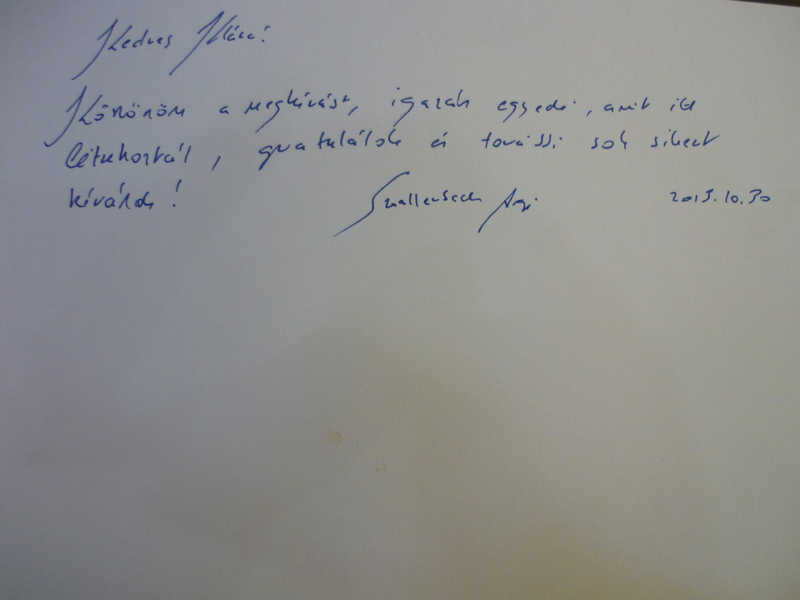 Kedves Klári!
Köszönöm a meghívást, igazán egyedi, amit itt
létrehoztál, gratulálok és további sok sikert
kívánok!
2015.10.30